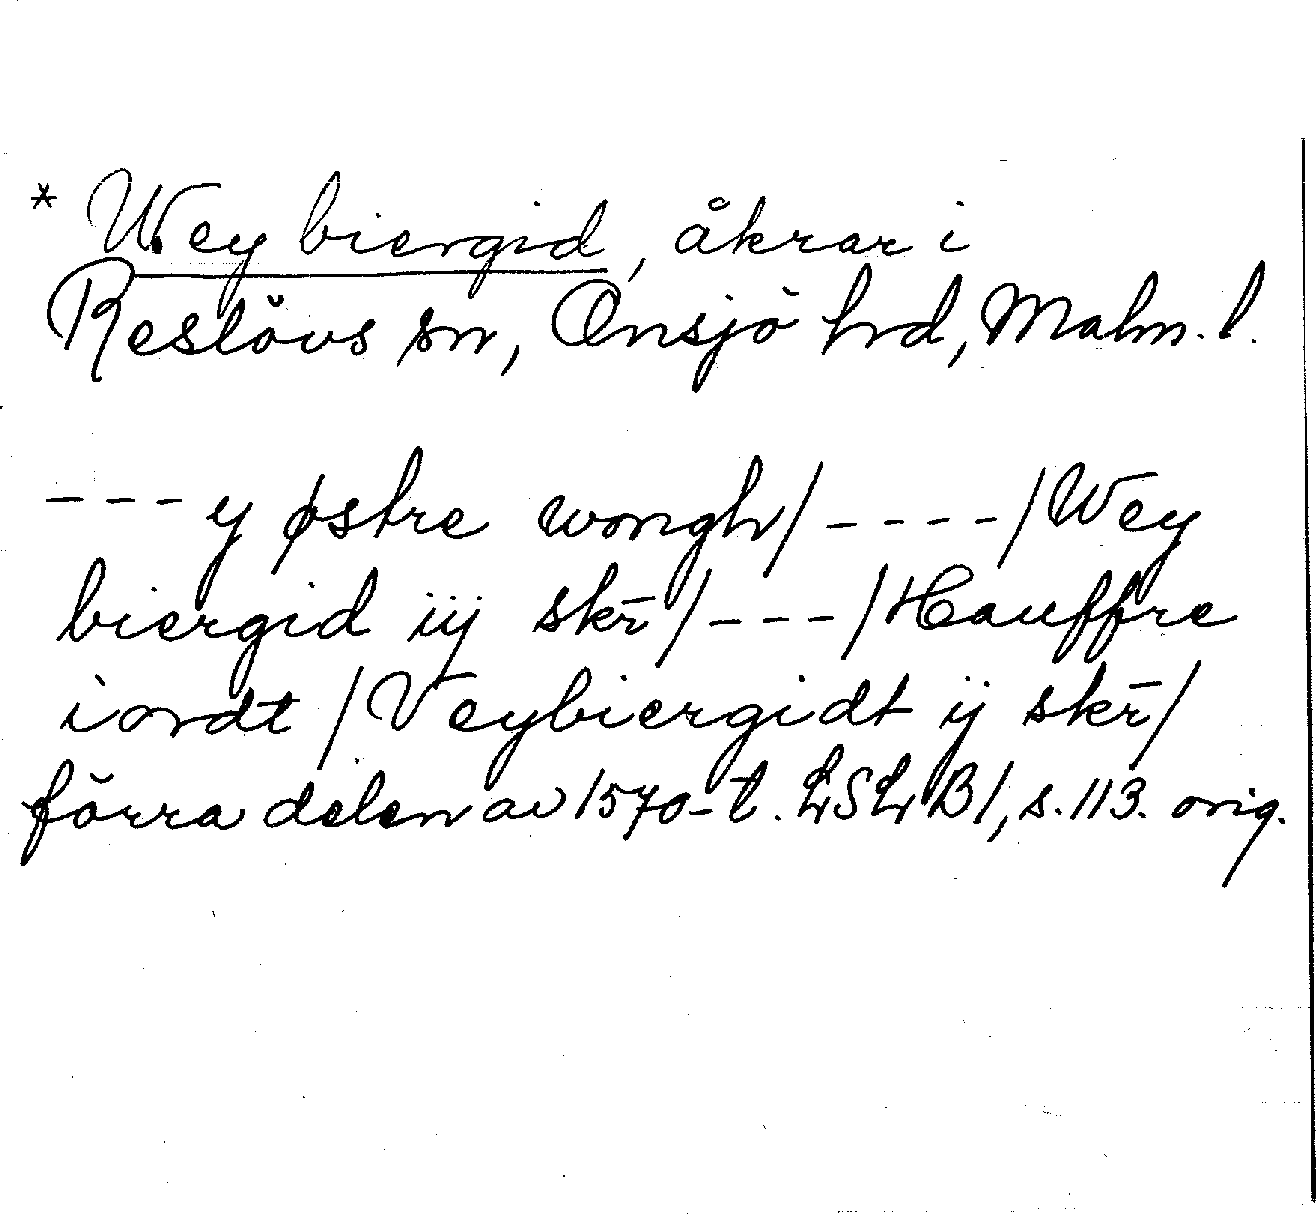 * Wey biergid, åkrar i
Reslövs sn, Onsjö hrd, Malm. l.
--- y østre wongh/ ---- /Wey
biergid iij skr̄/ --- /Hauffre
iordt /Veybiergidt ij skr̄/
förra delen av 1570-t. LSLB1, s. 113. orig.